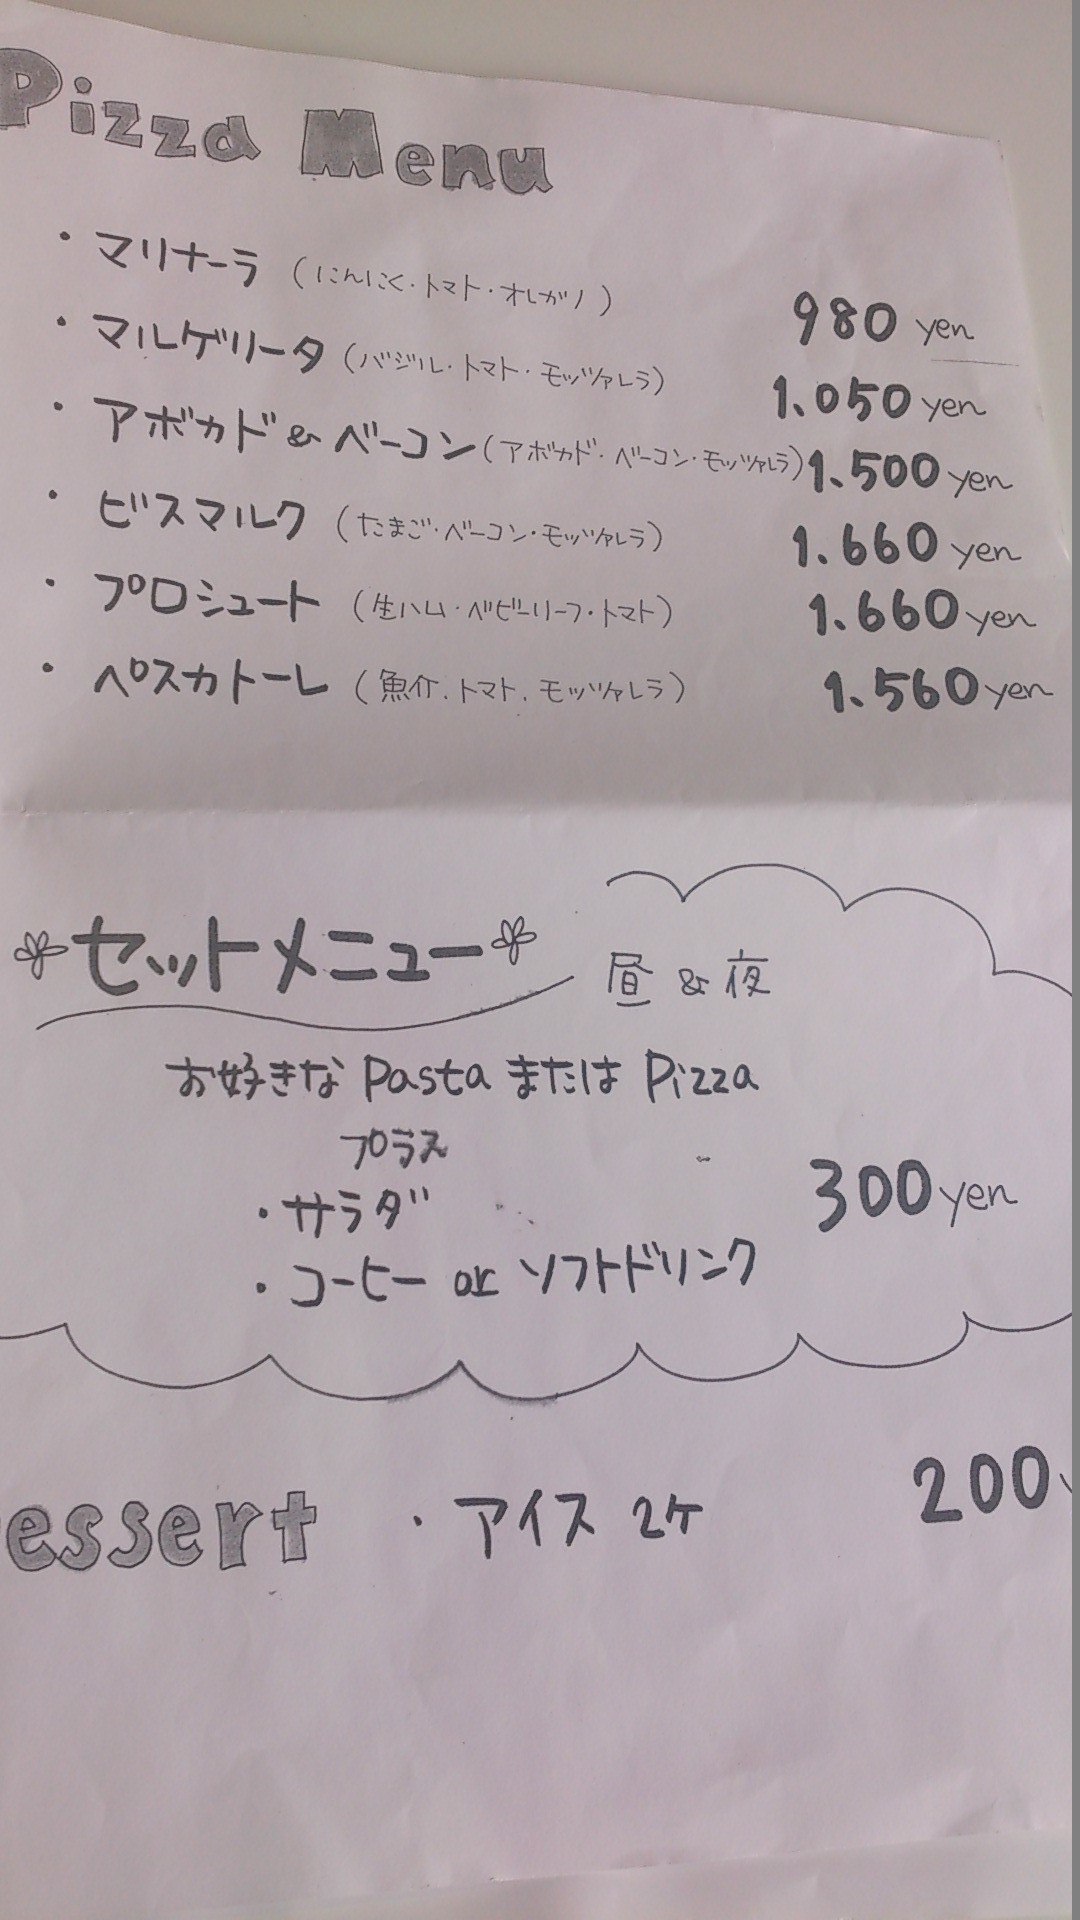 Pizza Menu
・マリナーラ (にんにく・トマト・オレガノ) 980 yen
・マルゲリータ (バジル・トマト・モッツァレラ) 1.050 yen
・アボカド&ベーコン (アボカド・ベーコン・モッツァレラ) 1.500 yen
・ビスマルク (たまご・ベーコン・モッツァレラ) 1.660 yen
・プロシュート (生ハム・ベビーリーフ・トマト) 1.660 yen
・ペスカトーレ (魚介.トマト.モッツァレラ) 1.560 yen
セットメニュー 昼&夜
お好きな Pasta または Pizza
プラス
・サラダ 300 yen
・コーヒー or ソフトドリンク
essert ・アイス 2ケ 200